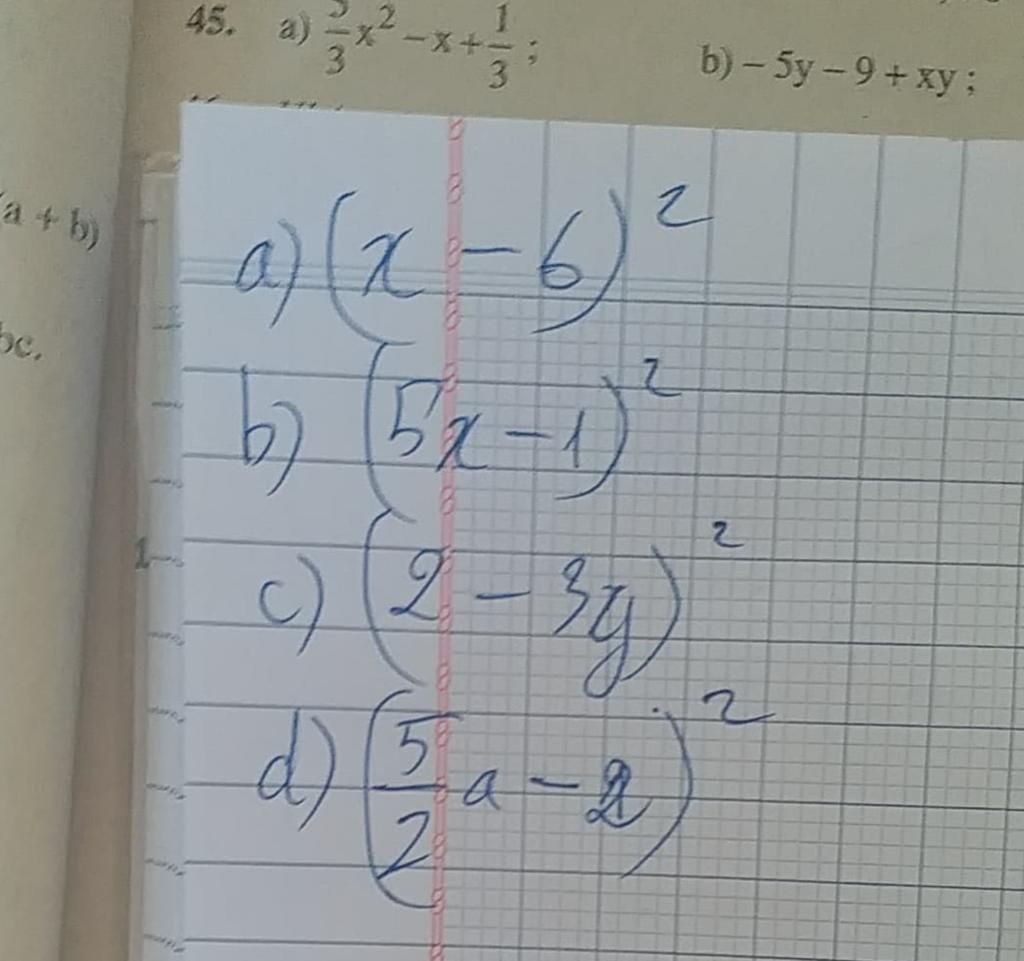 45. a) 5/3 x² − x + 1/3 ;
b) − 5y − 9 + xy ;
a + b)
bc.
a) (x − 6)²
b) (5x − 1)²
c) (2 − 3y)²
d) (5/2 a − 2)²